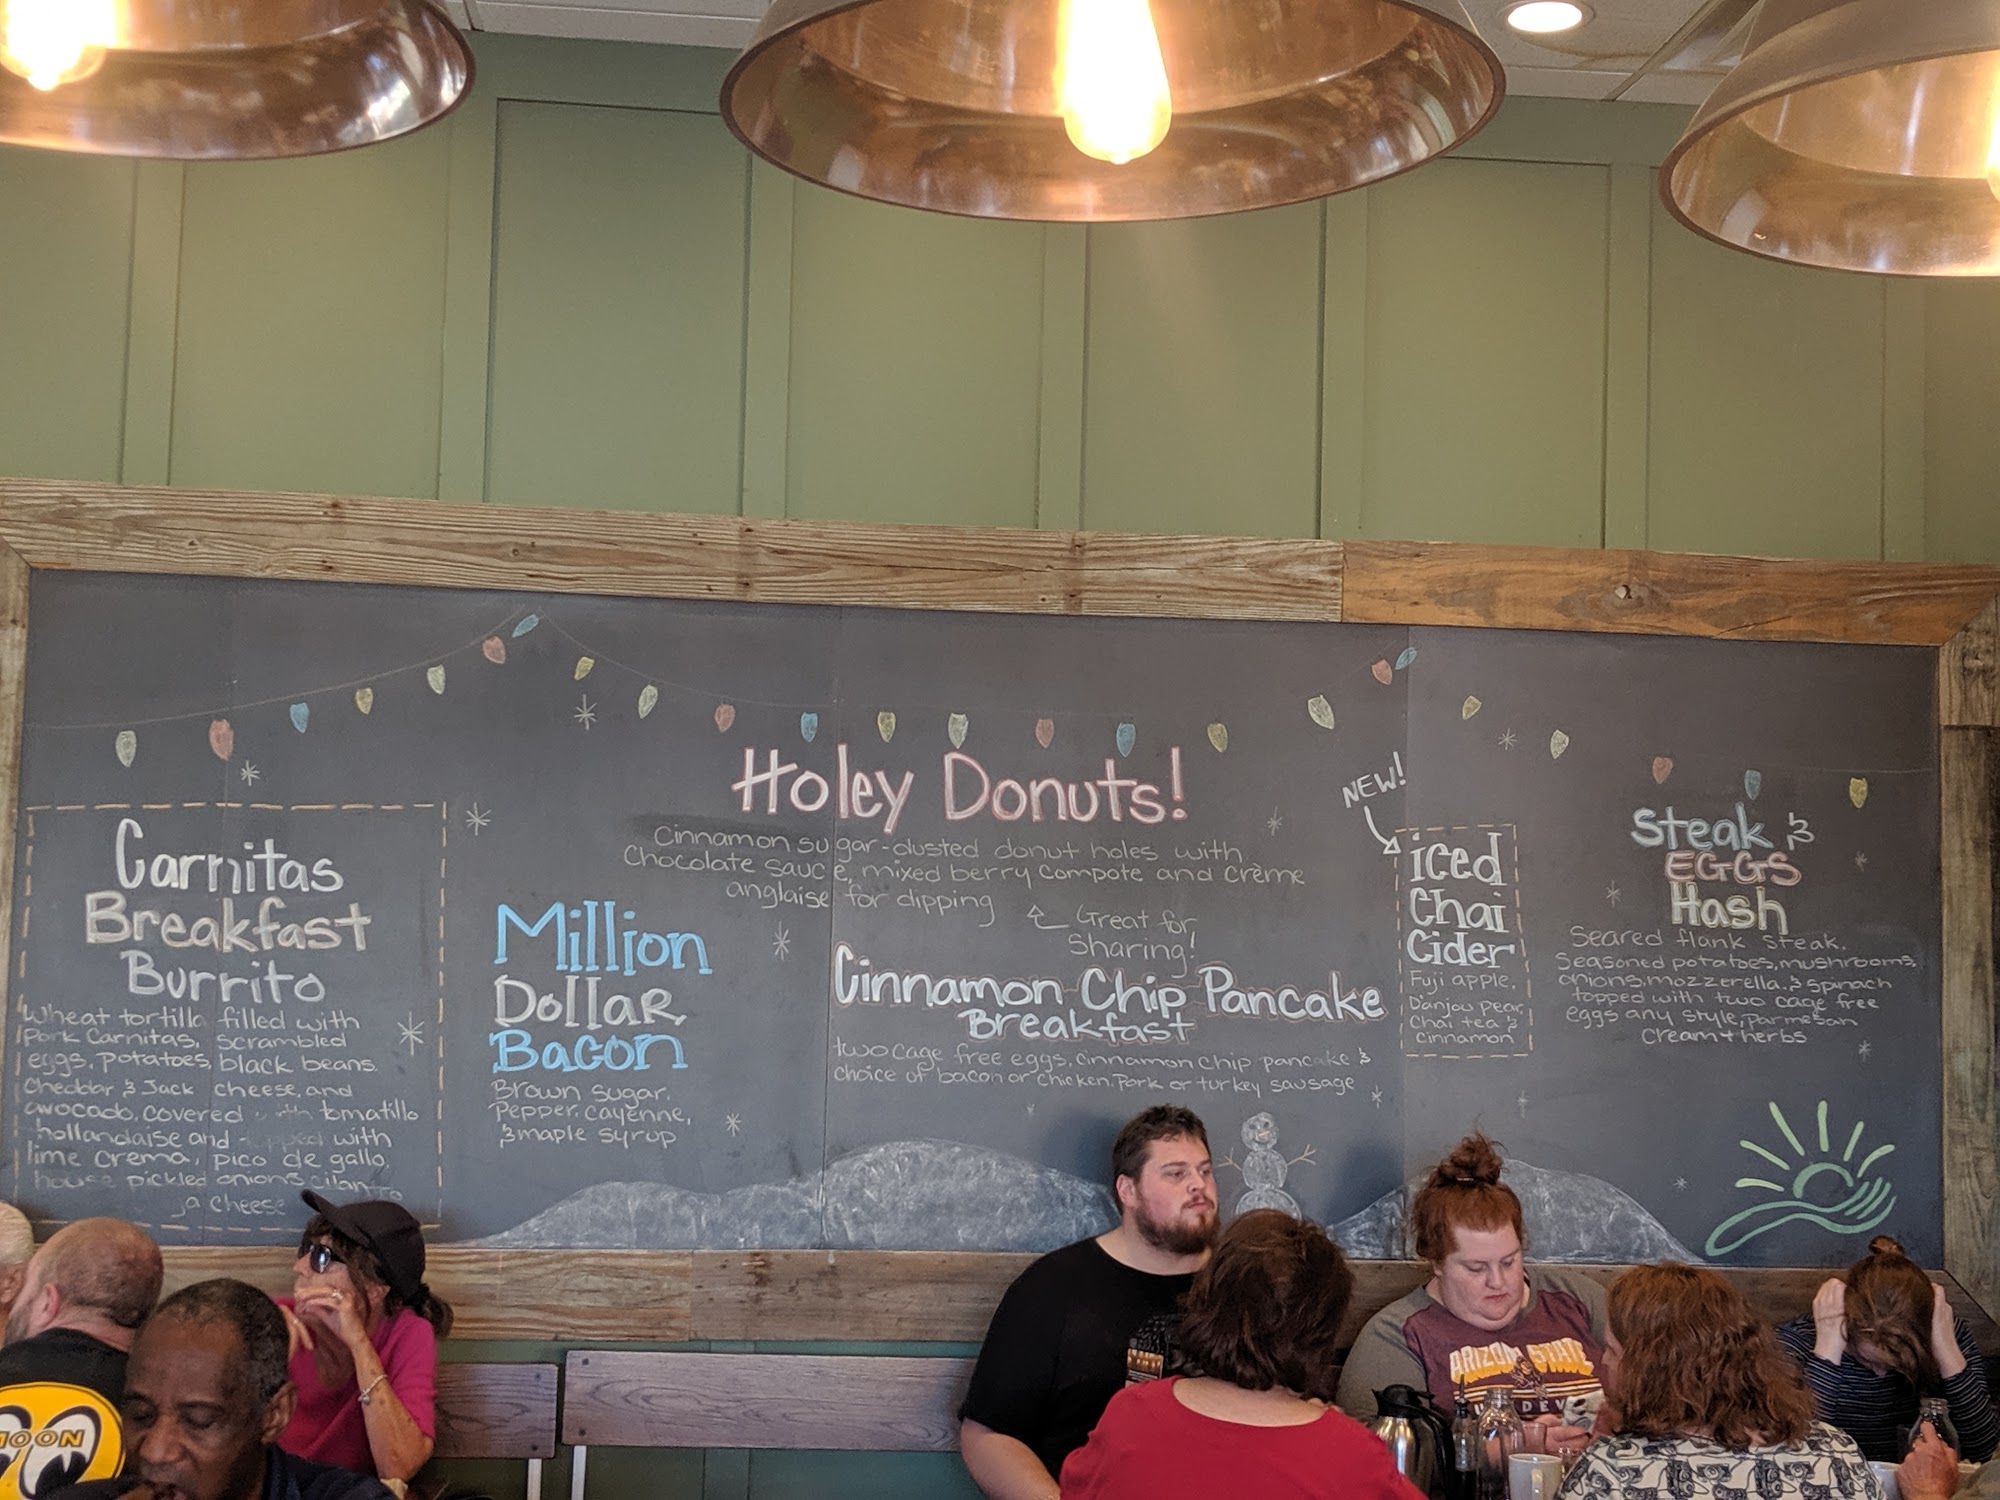 Carnitas
Breakfast
Burrito
Wheat tortilla filled with
pork carnitas, scrambled
eggs, potatoes, black beans
Cheddar & Jack cheese, and
avocado, covered with tomatillo
hollandaise and with
lime crema, pico de gallo,
house pickled onions, cilantro
cheese
Million
Dollar
Bacon
Brown sugar,
Pepper, cayenne,
& maple syrup
Holey Donuts!
Cinnamon sugar-dusted donut holes with
Chocolate sauce, mixed berry compote and crème
anglaise for dipping
Great for
Sharing!
Cinnamon Chip Pancake
Breakfast
two cage free eggs, cinnamon chip pancake &
choice of bacon or chicken, pork or turkey sausage
NEW!
iced
Chai
Cider
Fuji apple,
D'anjou pear,
Chai tea &
cinnamon
Steak &
EGGS
Hash
Seared flank steak,
Seasoned potatoes, mushrooms,
onions, mozzerella, & spinach
topped with two cage free
eggs any style, parmesan
cream + herbs
MOON
ARIZONA STATE